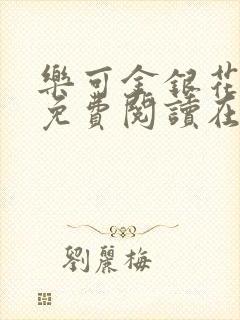 樂可金銀花
免費閱讀在
劉麗梅